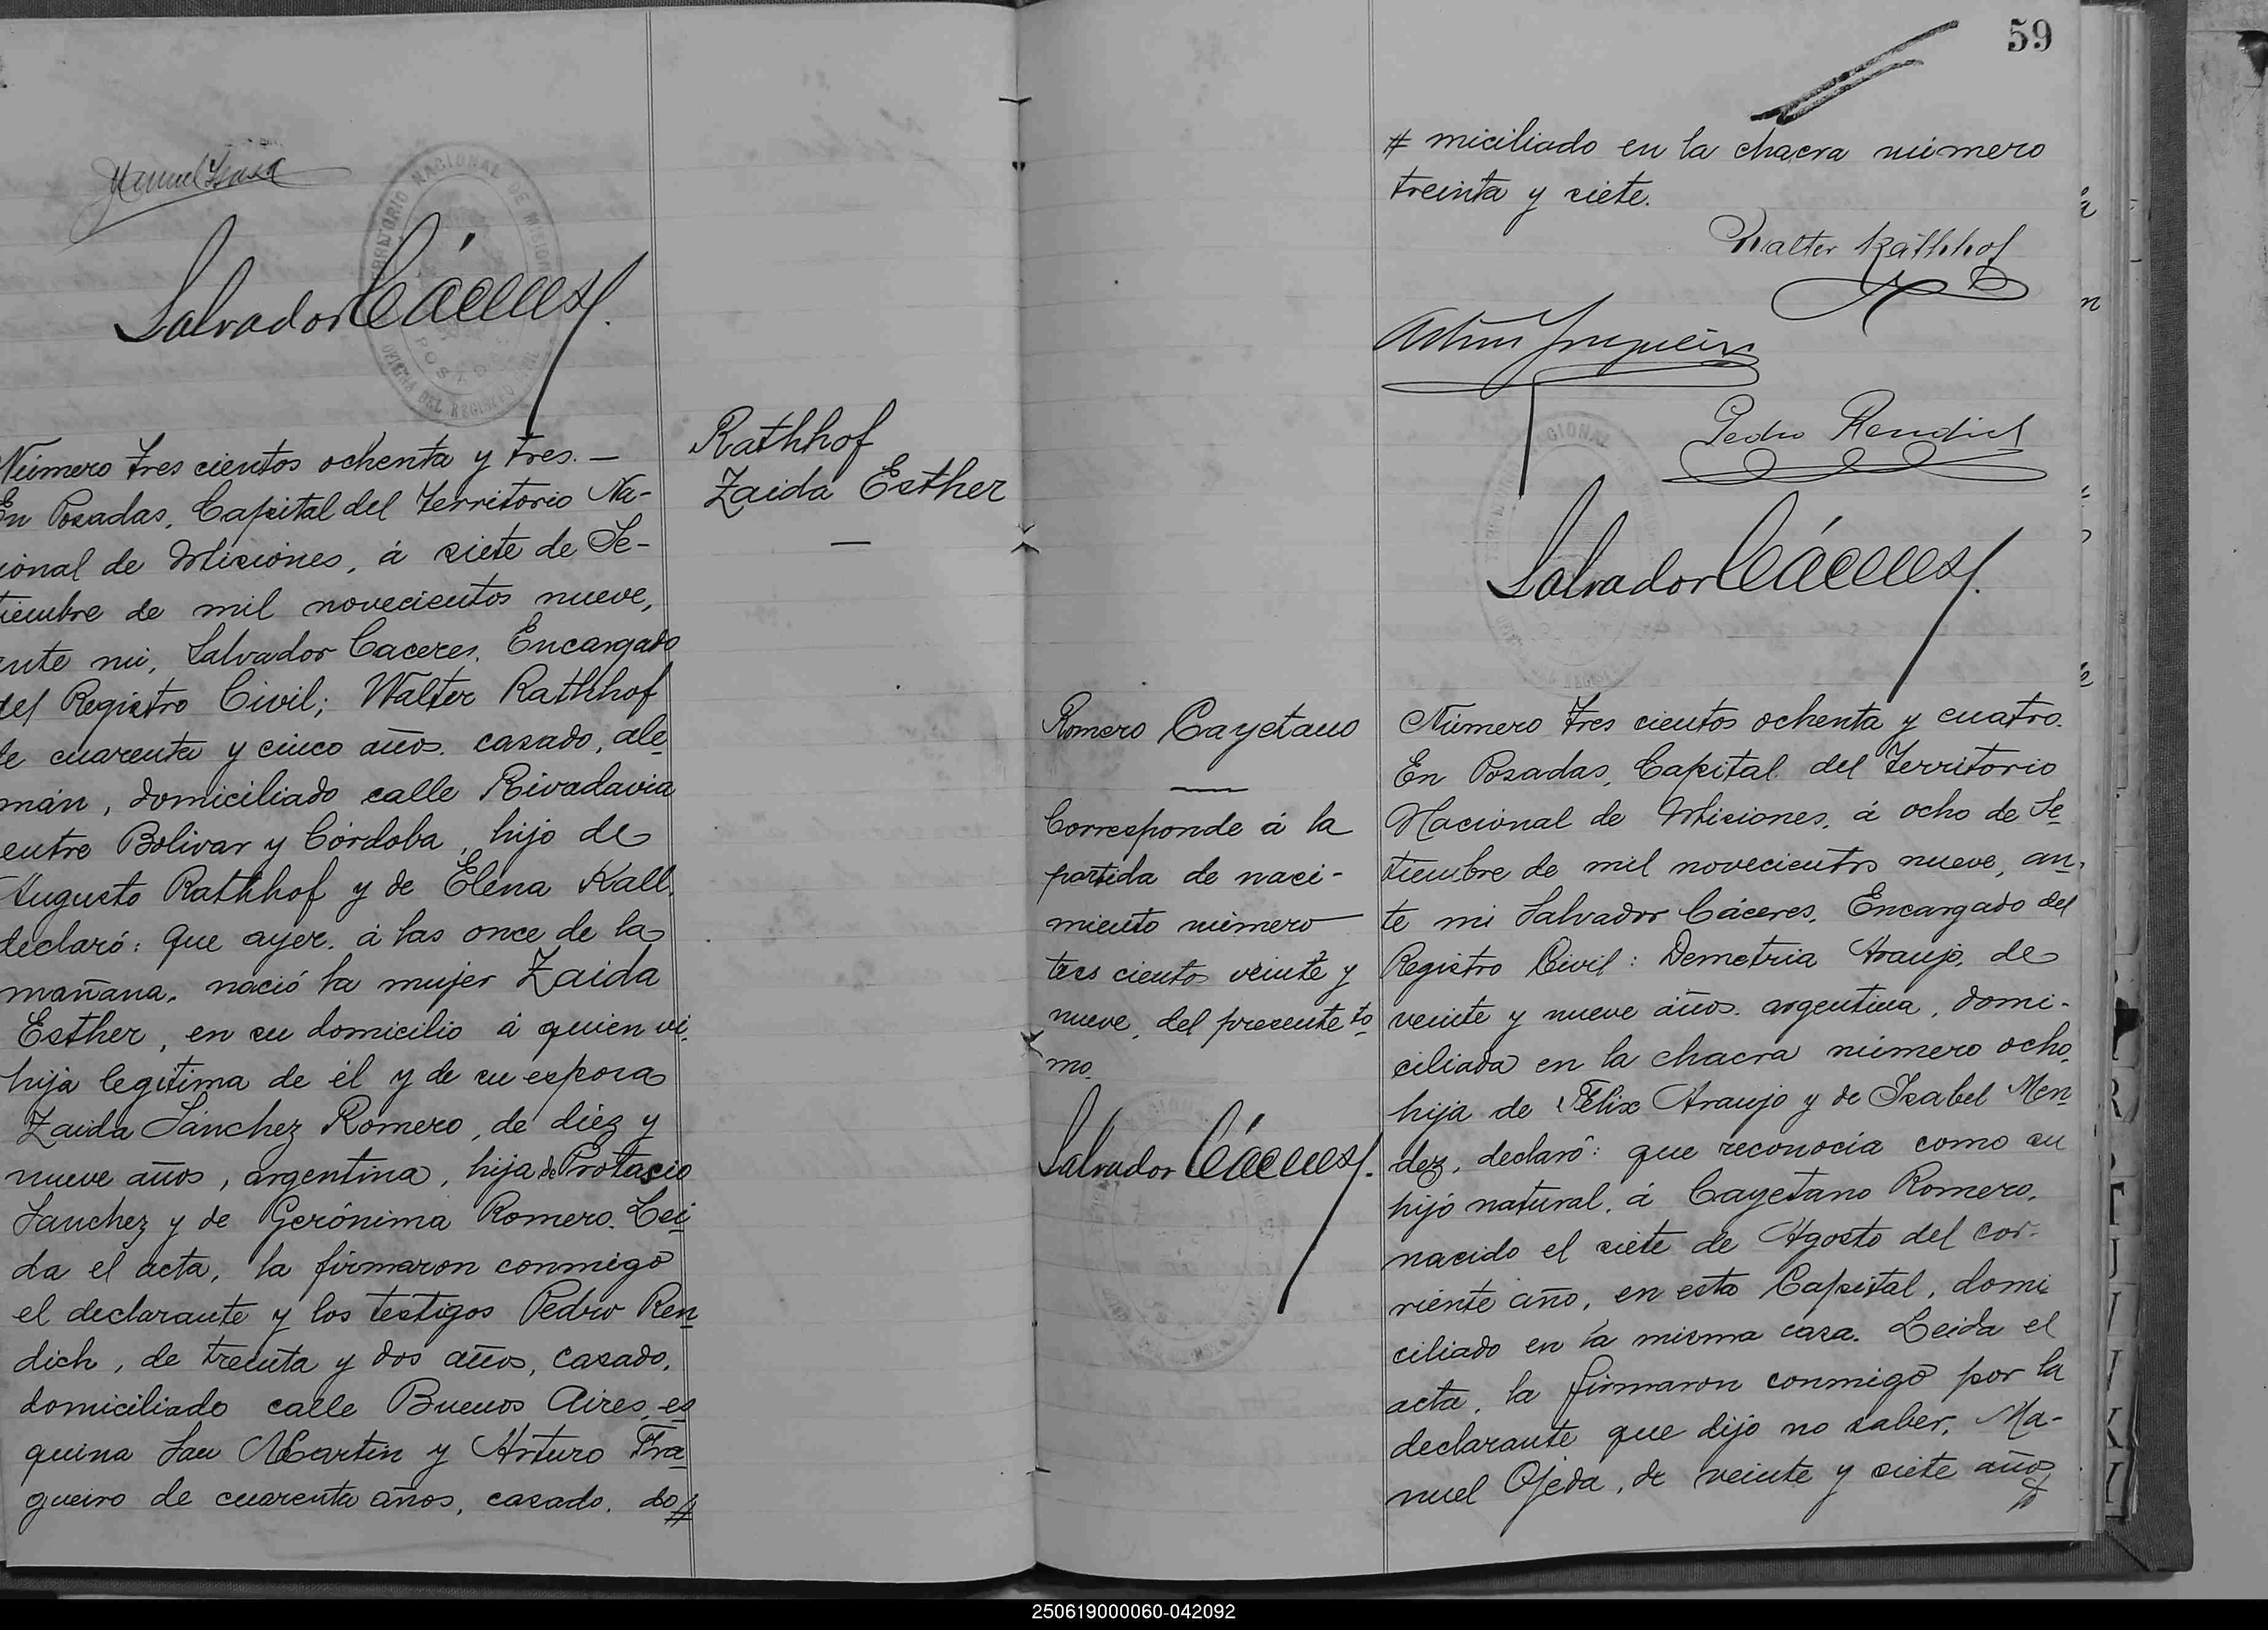 Salvador Cáceres
TERRITORIO NACIONAL DE MISIONES
POSADAS
OFICINA DEL REGISTRO CIVIL
Rathhof
Zaida Esther
Número tres cientos ochenta y tres. —
En Posadas, Capital del Territorio Na-
cional de Misiones, á siete de Se-
tiembre de mil novecientos nueve,
ante mi, Salvador Caceres, Encargado
del Registro Civil; Walter Rathhof
de cuarenta y cinco años, casado, ale
mán, domiciliado calle Rivadavia
entre Bolivar y Córdoba, hijo de
Augusto Rathhof y de Elena Kall,
declaró: Que ayer, á las once de la
mañana, nació la mujer Zaida
Esther, en su domicilio á quien vi,
hija legitima de él y de su esposa
Zaida Sánchez Romero, de diéz y
nueve años, argentina, hija de Protacio
Sanchez y de Gerónima Romero. Lei
da el acta, la firmaron conmigo
el declarante y los testigos Pedro Ren
dich, de treinta y dos años, casado,
domiciliado calle Buenos Aires, es
quina San Martin y Arturo Fra
gueiro de cuarenta años, casado, do #
59
# miciliado en la chacra número
treinta y siete.
Walter Rathhof
Arturo Fragueiro
Pedro Rendich
Salvador Cáceres
Romero Cayetano
Corresponde á la
partida de naci-
miento número
tres ciento veinte y
nueve, del presente to
mo.
Salvador Cáceres
Número tres cientos ochenta y cuatro.
En Posadas, Capital del Territorio
Nacional de Misiones, á ocho de Se
tiembre de mil novecientos nueve, an,
te mi Salvador Cáceres, Encargado del
Registro Civil: Demetria Araujo, de
veinte y nueve años, argentina, domi-
ciliada en la chacra número ocho,
hija de Félix Araujo y de Isabel Men
dez, declaró: que reconocia como su
hijo natural, á Cayetano Romero,
nacido el siete de Agosto del cor-
riente año, en esta Capital, domi
ciliado en la misma casa. Leida el
acta, la firmaron conmigo por la
declarante que dijo no saber, Ma-
nuel Ojeda, de veinte y siete años
250619000060-042092